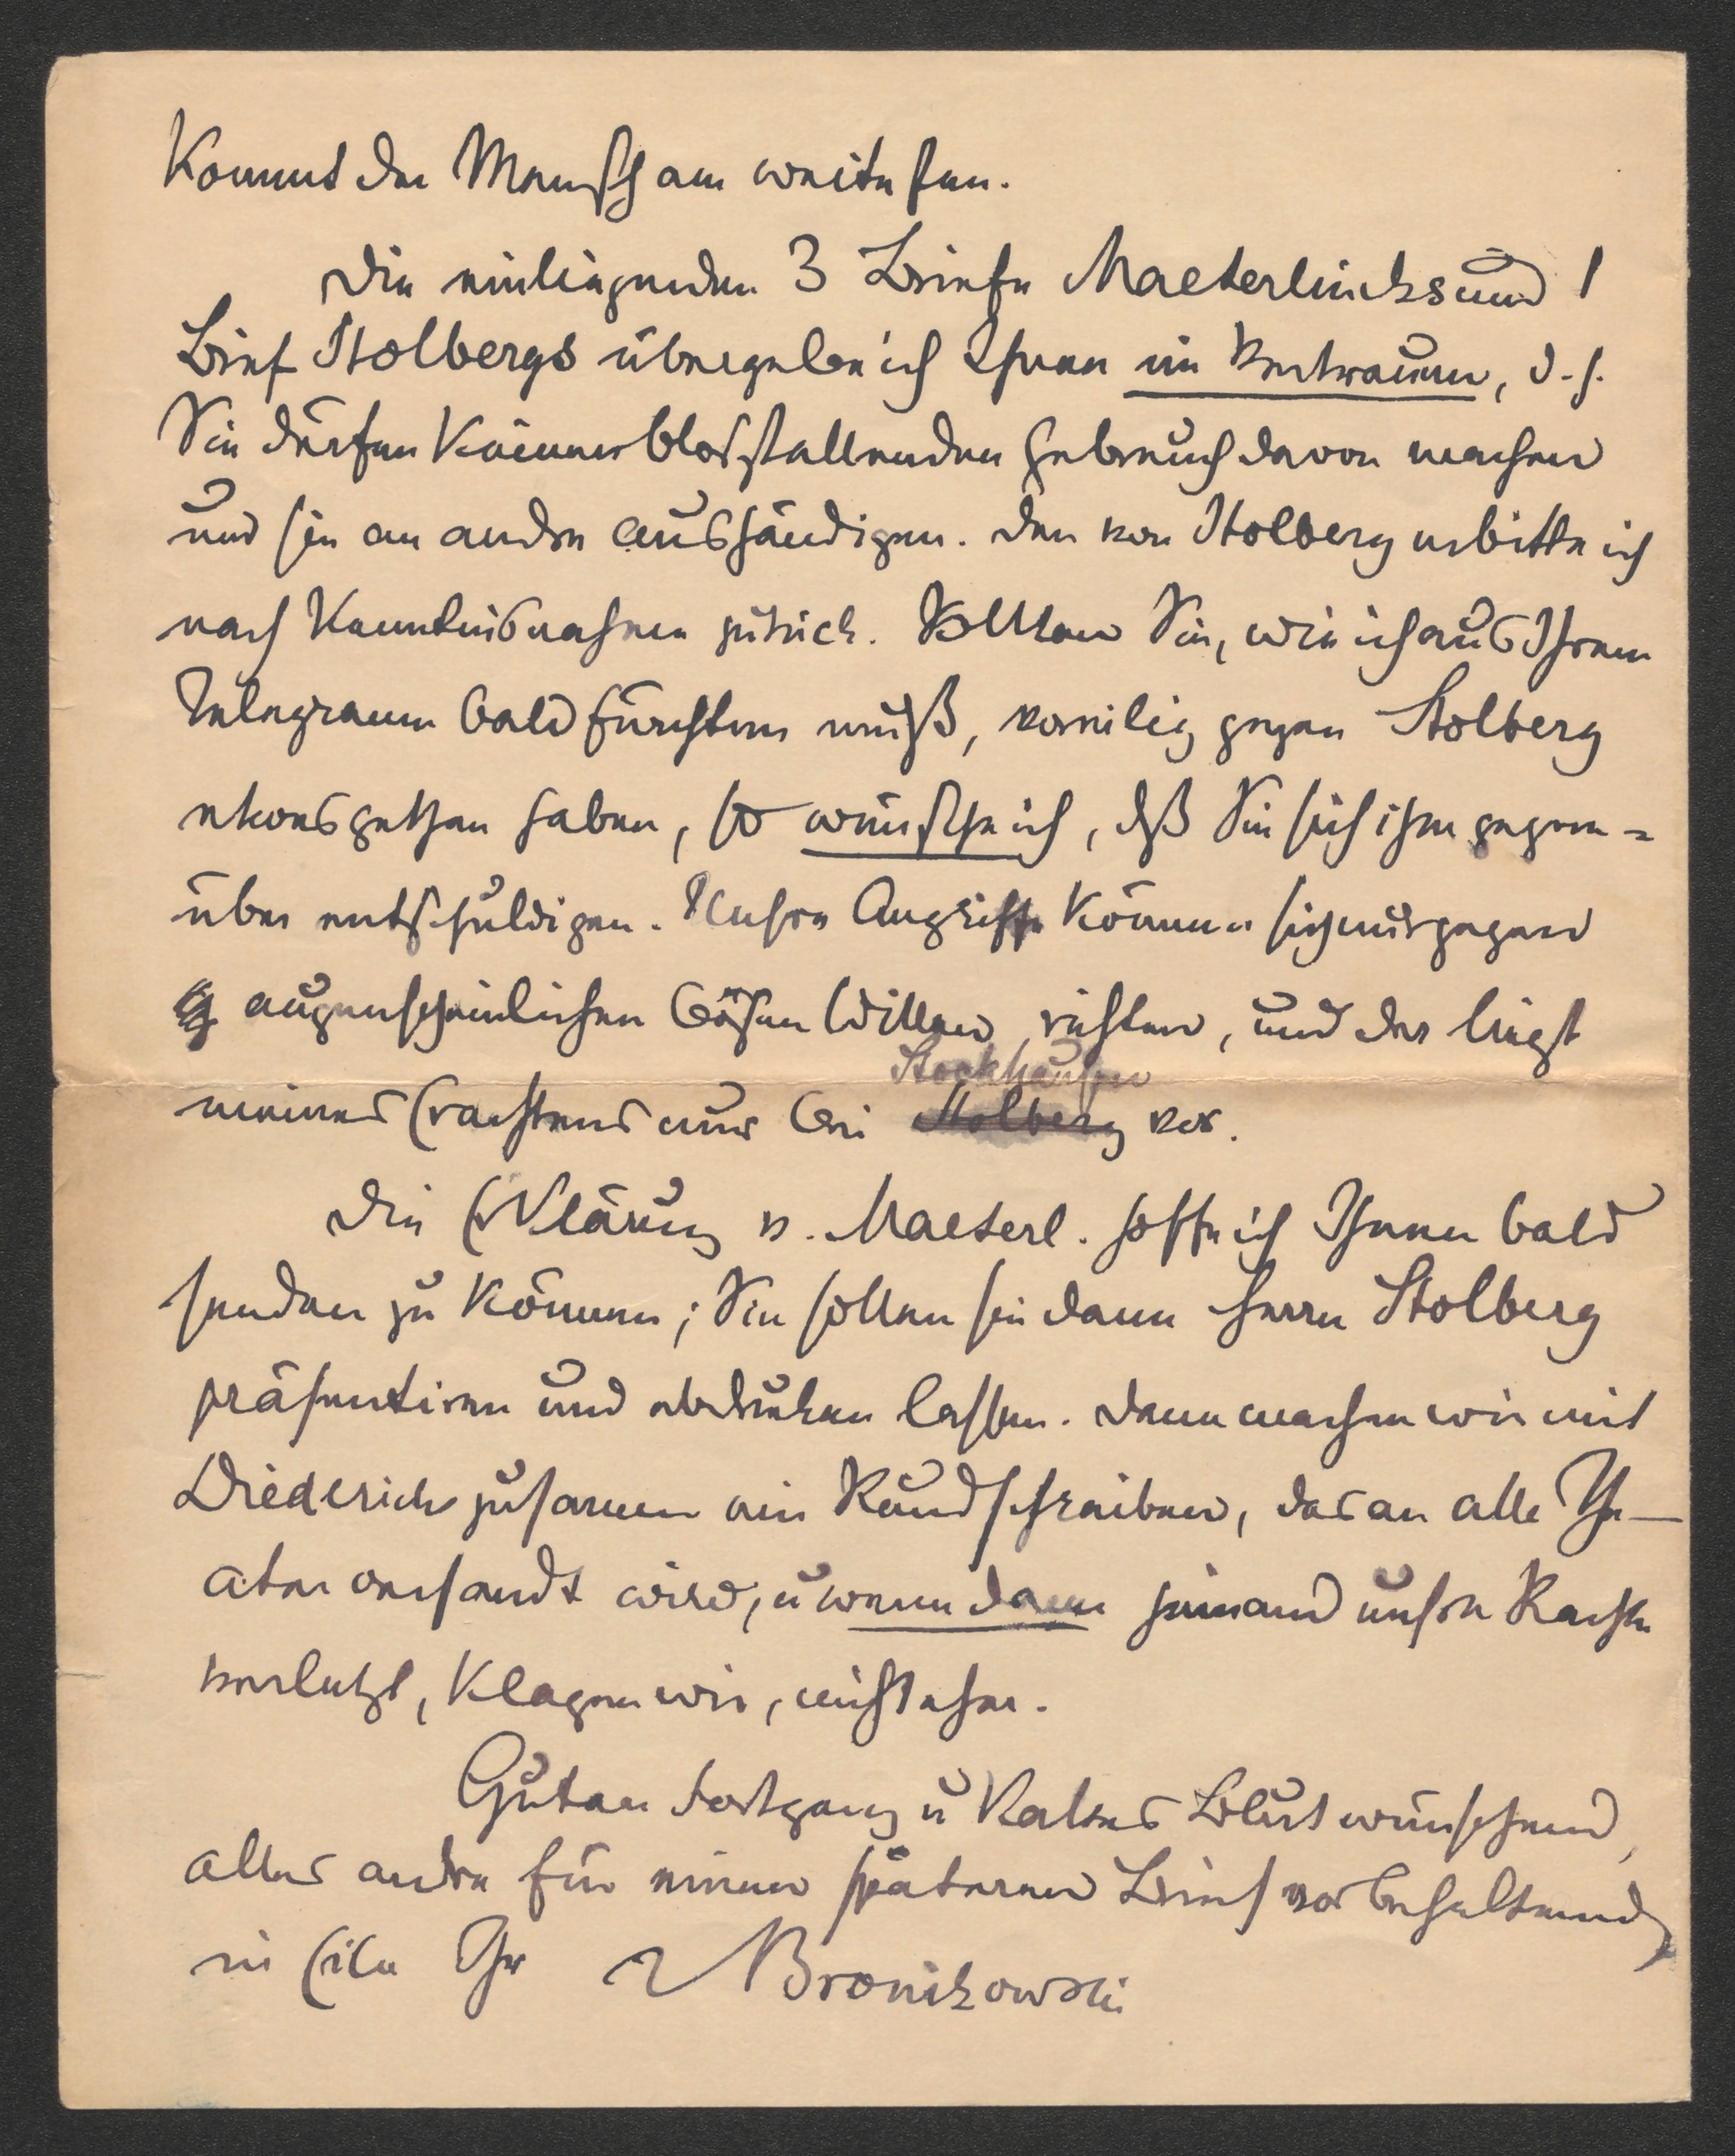 kommt der Mensch am weitesten.
Die einliegenden 3 Briefe Maeterlincks und 1
Brief Stolbergs übergebe ich Ihnen im Vertrauen, d. h.
Sie dürfen keinen bloßstellenden Gebrauch davon machen
und sie an andre aushändigen. Den von Stolberg erbitte ich
nach Kenntnisnahme zurück. Sollten Sie, wie ich aus Ihrem
Telegramm bald fürchten muß, voreilig gegen Stolberg
etwas gethan haben, so wünsche ich, dß Sie sich ihm gegen=
über entschuldigen. Unsre Angriffe können sich nur gegen
augenscheinlichen bösen Willen richten, und der liegt
Stockhausen
meines Erachtens nur bei Stolberg vor.
Die Erklärung v. Maeterl. hoffe ich Ihnen bald
senden zu können; Sie sollen sie dann Herrn Stolberg
präsentiren und abdrucken lassen. Dann machen wir mit
Diederichs zusammen ein Rundschreiben, das an alle The-
ater versandt wird, u wenn dann jemand unsre Rechte
verletzt, klagen wir, nicht eher.
Guten Fortgang u kaltes Blut wünschend,
alles andre für einen späteren Brief vorbehaltend,
in Eile Ihr Bronikowski